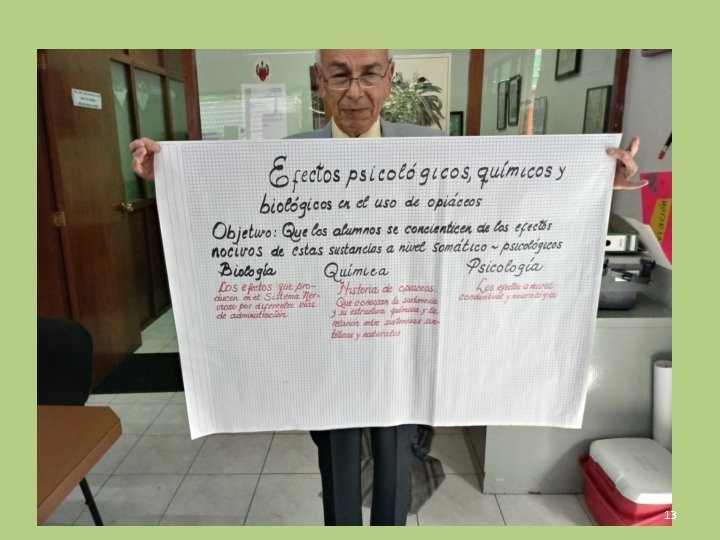 Efectos psicológicos, químicos y
biológicos en el uso de opiáceos
Objetivo: Que los alumnos se concienticen de los efectos
nocivos de estas sustancias a nivel somático ~ psicológicos
Biología
Los efectos que pro-
ducen en el Sistema Ner-
vioso por diferentes vías
de administración
Química
Historia de opiaceos.
Que conozcan la sustancia
y su estructura química y la
relacion entre sustancias sin-
téticas y naturales
Psicología
Los efectos a nivel
conductual y neurológico
13